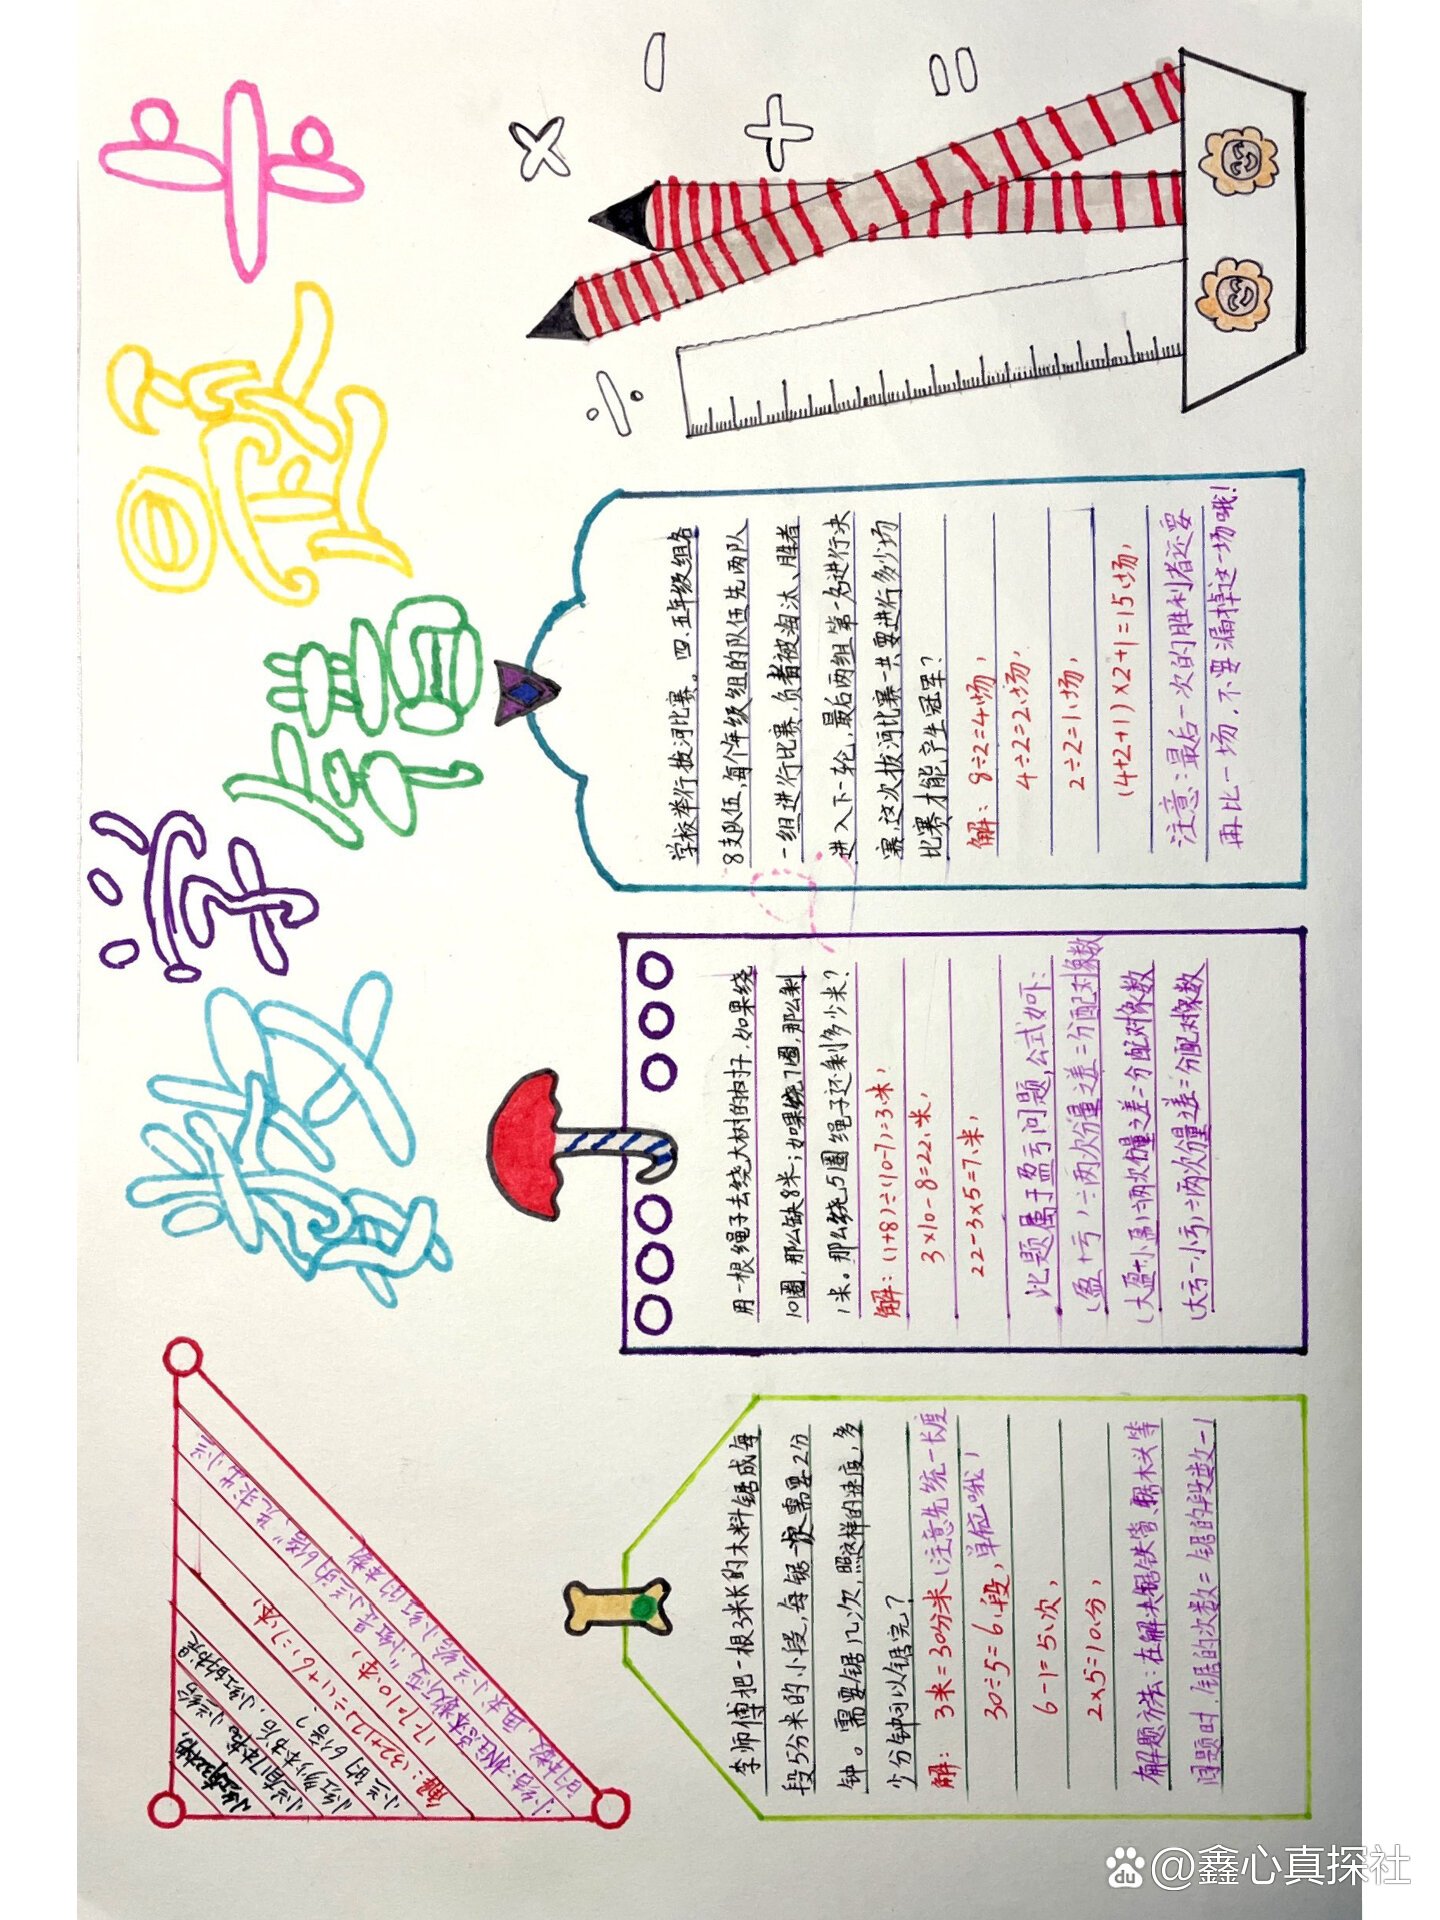 数学错题卡
小红有32本书,
小兰有17本书,小兰给
小红多少本书后,小红的书是
小兰的6倍?
解:(32+17)÷(1+6)=7(本)
17-7=10(本)
李师傅把一根3米长的木料锯成每
段5分米的小段,每锯一次需要2分
钟。需要锯几次,照这样的速度,多
少分钟可以锯完?
解:3米=30分米(注意先统一长度
30÷5=6、段,单位哦)
6-1=5、次,
2×5=10、分,
解题方法:在解决锯铁管、锯木头等
问题时,锯的次数=锯的段数-1
用一根绳子去绕大树的树干,如果绕
10圈,那么缺8米;如果绕7圈,那么剩
1米。那么绕5圈绳子还剩多少米?
解:(1+8)÷(10-7)=3、米,
3×10-8=22、米,
22-3×5=7、米,
此题属于盈亏问题,公式如下:
(盈+亏)÷两次分量之差=分配对象数
(大盈-小盈)÷两次分量之差=分配对象数
(大亏-小亏)÷两次分量之差=分配对象数
学校举行拔河比赛。四、五年级组各
8支队伍,每个年级组的队伍先两队
一组进行比赛,负者被淘汰、胜者
进入下一轮,最后两组第一名进行决
赛,这次拔河比赛一共要进行多少场
比赛才能产生冠军?
解:8÷2=4、场,
4÷2=2、场,
2÷2=1、场,
(4+2+1)×2+1=15、场,
注意:最后一次的胜利者还要
再比一场,不要漏掉这一场哦!
@鑫心真探社